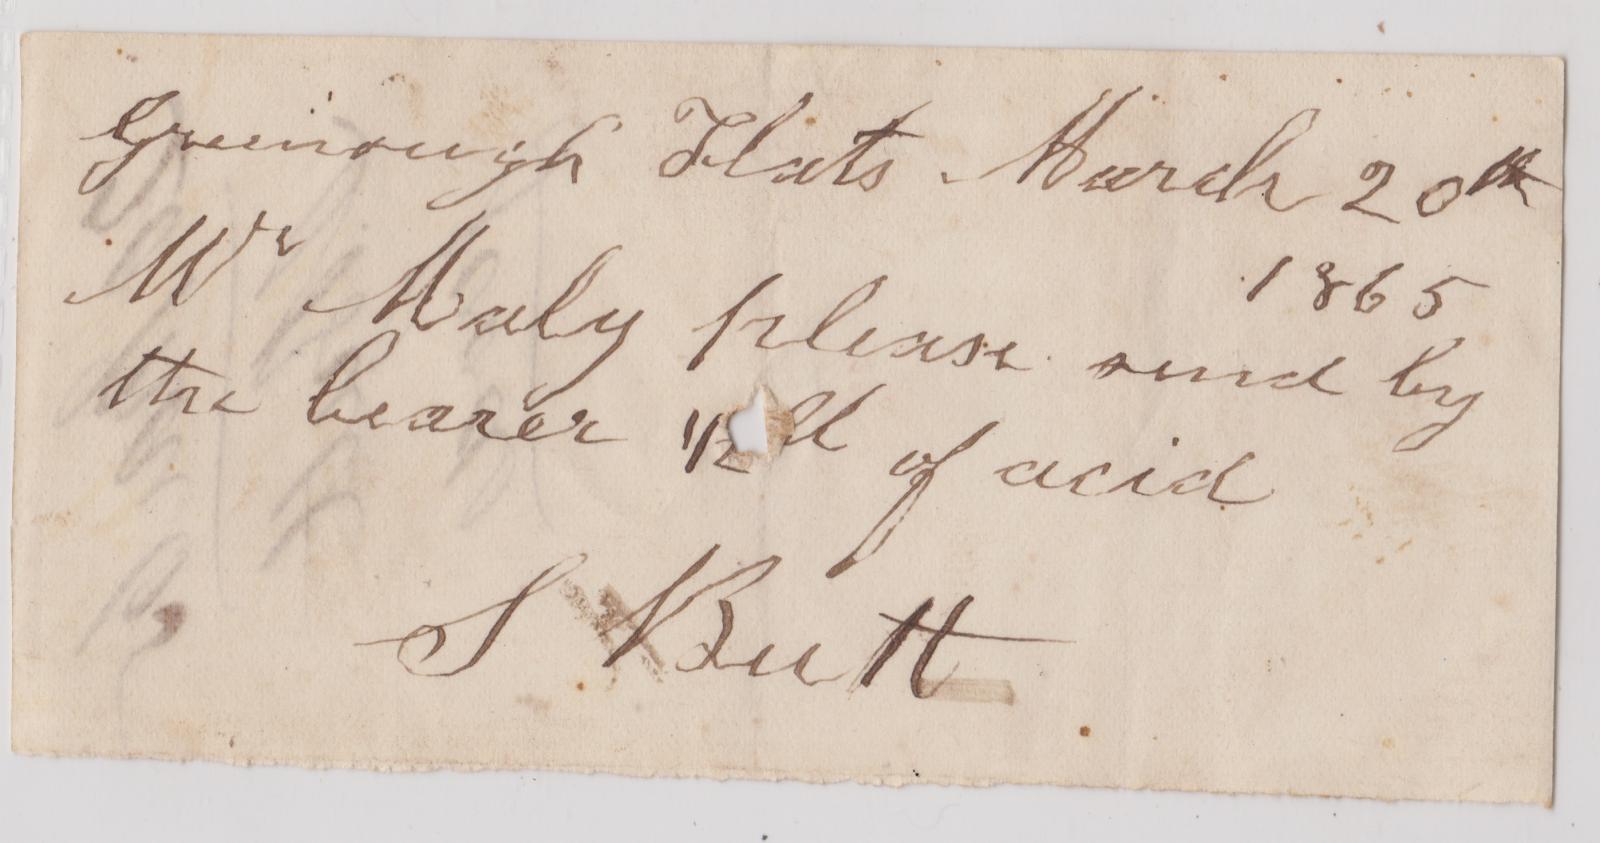 Greenough Flats March 20th
1865
Mr Maly please send by
the bearer 1/2 of acid
S Butt